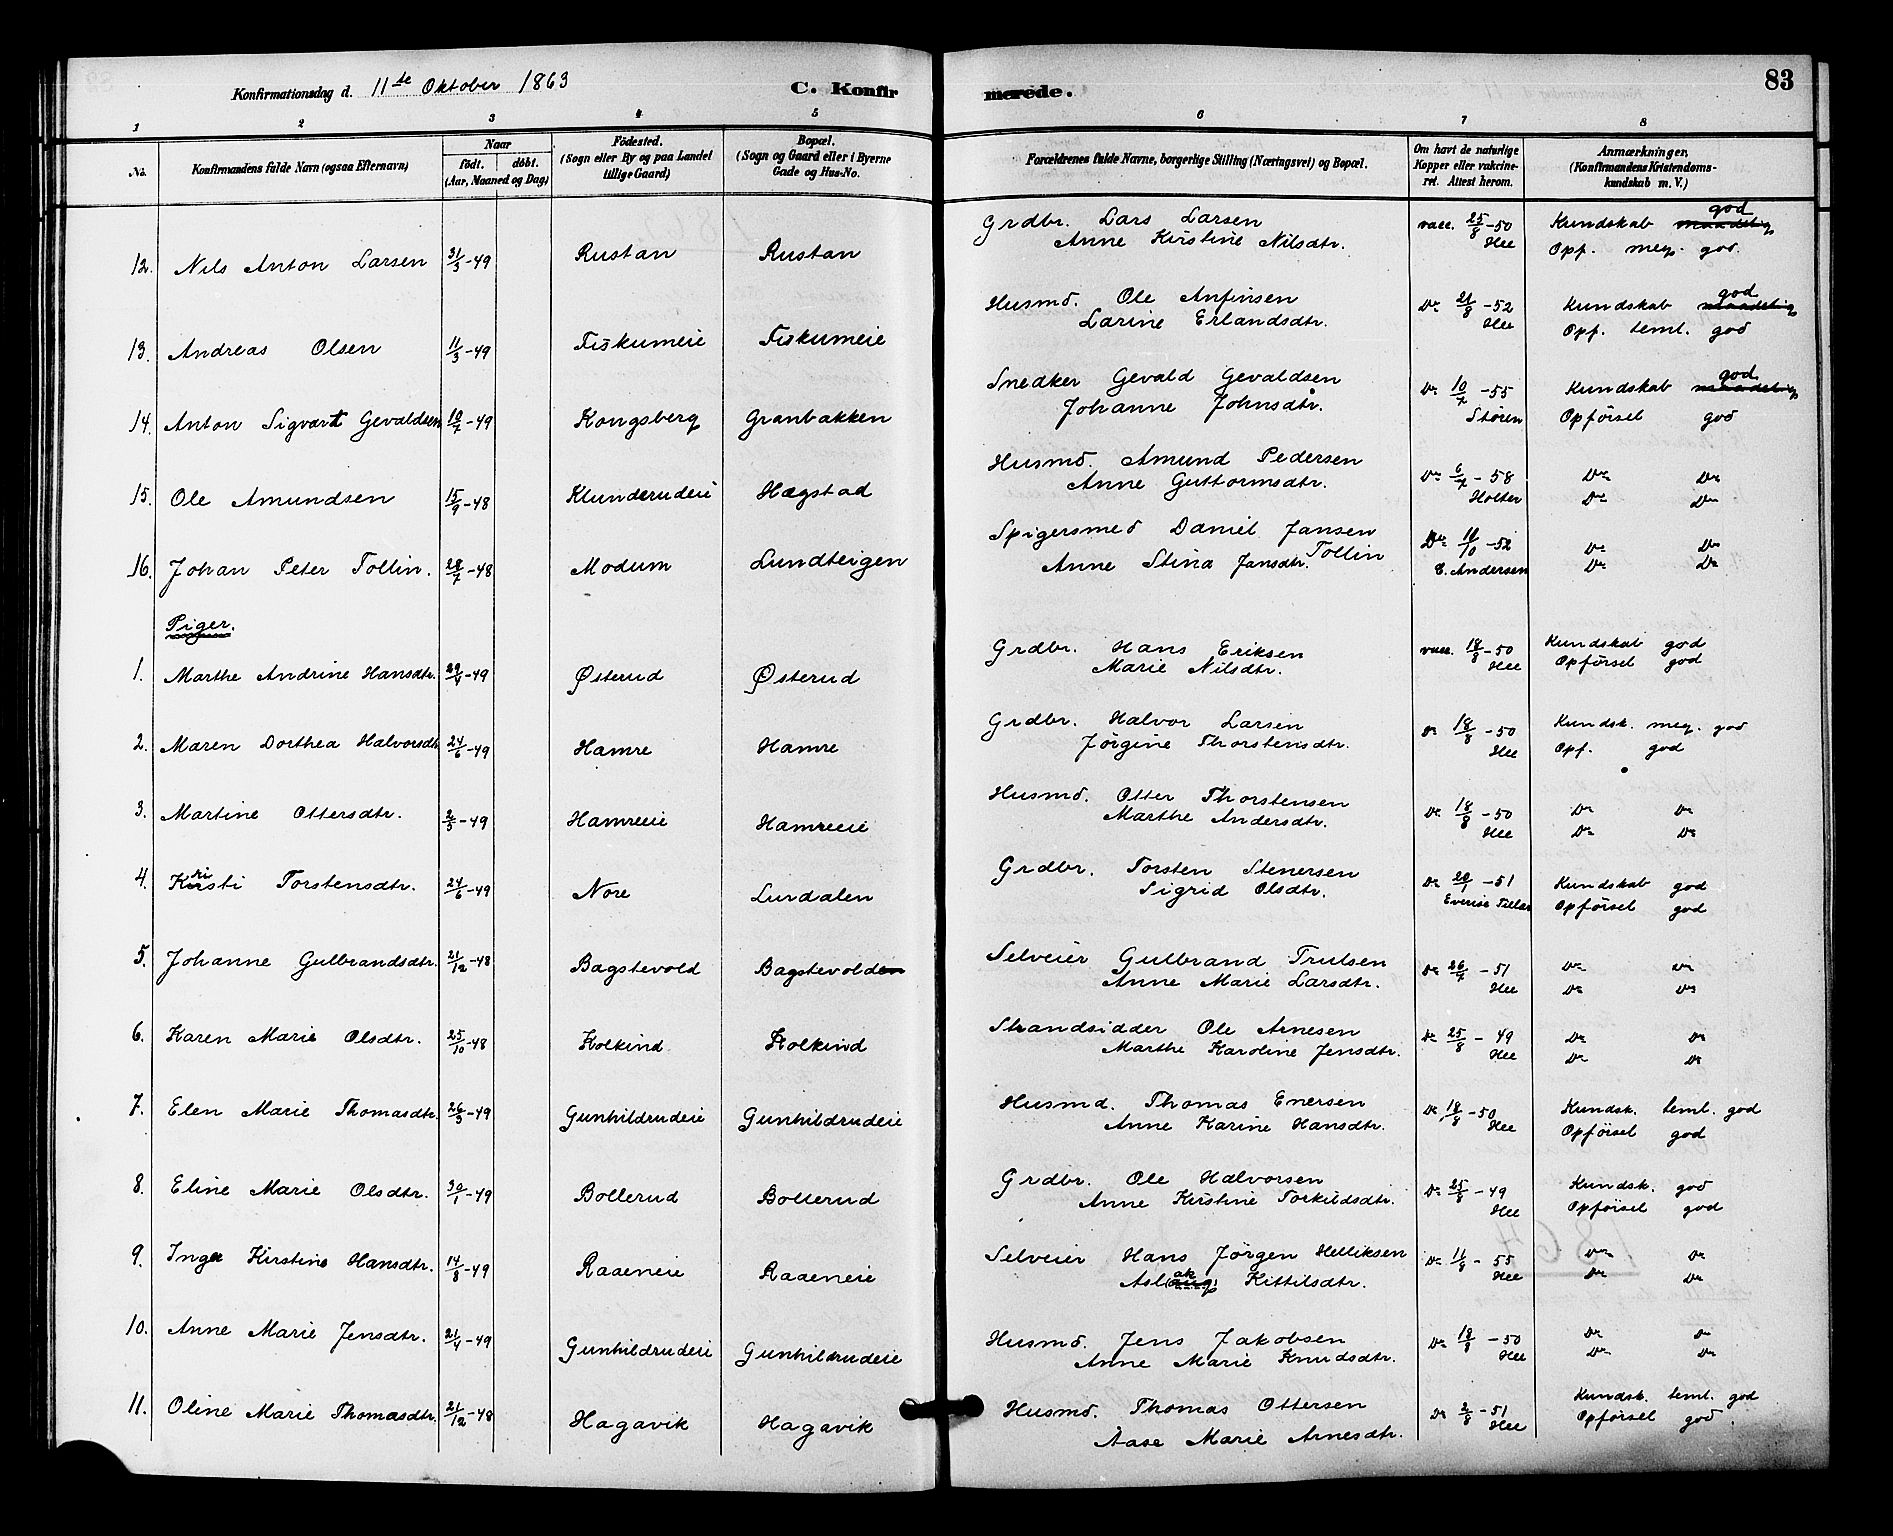 Konfirmationsdag d. 11te Oktober 1863
C. Konfirmerede.
83
1 2 3 4 5 6 7 8
No.
Konfirmandens fulde Navn (ogsaa Efternavn)
Naar
födt. döbt.
(Aar, Maaned og Dag)
Födested.
(Sogn eller By og paa Landet
tillige Gaard)
Bopæl.
(Sogn og Gaard eller i Byerne
Gade og Hus-No.
Forældrenes fulde Navne, borgerlige Stilling (Næringsvei) og Bopæl.
Om havt de naturlige
Kopper eller vakcine-
ret. Attest herom.
Anmærkninger,
(Konfirmandens Kristendoms-
kundskab m. V.)
12. Nils Anton Larsen 31/3-49 Rustan Rustan Grdbr. Lars Larsen vacc. 25/8-50 Kundskab maadelig god
Anne Kirstine Nilsdtr. Hee Opf. meg. god.
13. Andreas Olsen 11/3-49 Fiskumeie Fiskumeie Husmd. Ole Anfinsen Do 21/8-52 Kundskab maadelig god
Larine Erlandsdtr. Hee Opf. teml. god
14. Anton Sigvart Gevaldsen 10/7-49 Kongsberg Granbakken Snedker Gevald Gevaldsen Do 10/7-55 Kundskab maadelig god
Johanne Johnsdtr. Støren Opförsel god
15. Ole Amundsen 15/9-48 Klunderudeie Hægstad Husmd. Amund Pedersen Do 6/7-58 Do Do
Anne Guttormsdtr. Holter Do Do
16. Johan Peter Tollin. 28/7-48 Modum Lundteigen Spigersmed Daniel Jansen Tollin Do 11/10-52 Do Do
Anne Stina Jansdtr. C. Andersen Do Do
Piger.
1. Marthe Andrine Hansdtr. 29/4-49 Østerud Østerud Grdbr. Hans Eriksen vacc. 18/8-50 Kundskab god
Marie Nilsdtr. Hee Opförsel god
2. Maren Dorthea Halvorsdtr 24/6-49 Hamre Hamre Grdbr. Halvor Larsen Do 18/8-50 Kundsk. meg. god
Jörgine Thorstensdtr. Hee Opf. god
3. Martine Ottersdtr. 2/5-49 Hamreeie Hamreeie Husmd. Otter Thorstensen Do 18/8-50 Do Do
Marthe Andersdtr. Hee Do Do
4. Kirsti Torstensdtr. 24/6-49 Nore Lurdalen Grdbr. Torsten Stenersen Do 20/1-51 Kundskab god
Sigrid Olsdtr. Opförsel god
5. Johanne Gulbrandsdtr. 21/12-48 Bagstevold Bagstevolden Selveier Gulbrand Trulsen Do 26/7-51 Do Do
Anne Marie Larsdtr. Hee Do Do
6. Karen Marie Olsdtr. 25/10-48 Kolkind Kolkind Strandsidder Ole Arnesen Do 25/8-49 Do Do
Marthe Karoline Jensdtr. Hee Do Do
7. Elen Marie Thomasdtr. 26/3-49 Gunhildrudeie Gunhildrudeie Husmd. Thomas Enersen Do 18/8-50 Kundsk. teml. god
Anne Karine Hansdtr. Hee Opförsel god
8. Eline Marie Olsdtr. 30/1-49 Bollerud Bollerud Grdbr. Ole Halvorsen Do 25/8-49 Kundsk. god
Anne Kirstine Torkildsdtr. Hee Opförsel god
9. Inga Kirstine Hansdtr. 14/8-49 Raaeneie Raaeneie Selveier Hans Jörgen Helliksen Do 11/8-55 Do Do
Aslaug ak Kittilsdtr. Hee Do Do
10. Anne Marie Jensdtr. 21/4-49 Gunhildrudeie Gunhildrudeie Husmd. Jens Jakobsen Do 18/8-50 Do Do
Anne Marie Knudsdtr. Hee Do Do
11. Oline Marie Thomasdtr. 21/12-48 Hagavik Hagavik Husmd. Thomas Ottersen Do 3/8-51 Kundsk. teml. god
Aase Marie Arnesdtr. Hee Opförsel god.